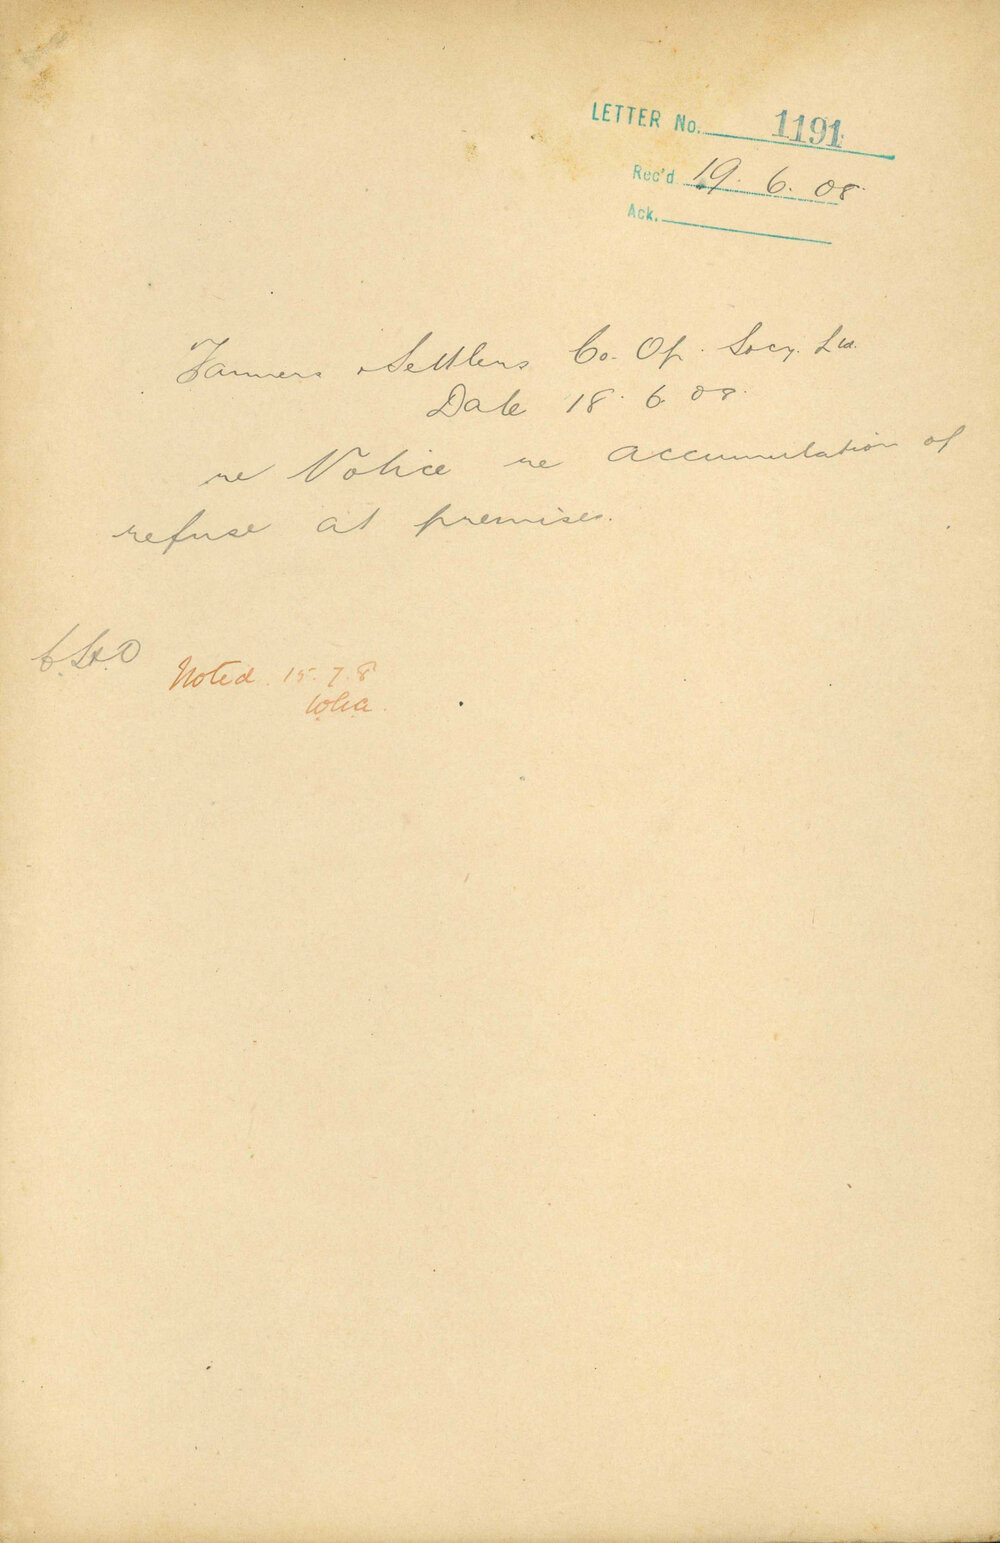 LETTER No. 1191
Rec'd 19. 6. 08
Ack.
Farmers & Settlers Co. Op. Socy. Ltd.
Date 18. 6. 08.
re Notice re accumulation of
refuse at premises.
Noted 15.7.8